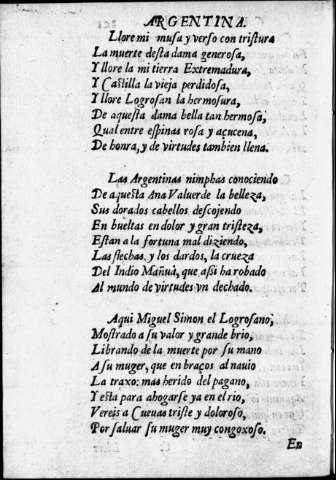 ARGENTINA.
Llore mi musa y verso con tristura
La muerte desta dama generosa,
Y llore la mi tierra Extremadura,
Y Castilla la vieja perdidosa,
Y llore Logrosan la hermosura,
De aquesta dama bella tan hermosa,
Qual entre espinas rosa y açucena,
De honra, y de virtudes tambien llena.
Las Argentinas nimphas conociendo
De aquesta Ana Valuerde la belleza,
Sus dorados cabellos descojendo
En bueltas en dolor y gran tristeza,
Estan a la fortuna mal diziendo,
Las flechas, y los dardos, la crueza
Del Indio Mañuà, que asi ha robado
Al mundo de virtudes vn dechado.
Aqui Miguel Simon el Logrosano,
Mostrado a su valor y grande brio,
Librando de la muerte por su mano
A su muger, que en braços al nauio
La traxo: mas herido del pagano,
Y esta para ahogarse ya en el rio,
Vereis a Cueuas triste y doloroso,
Por saluar su muger muy congoxoso.
En